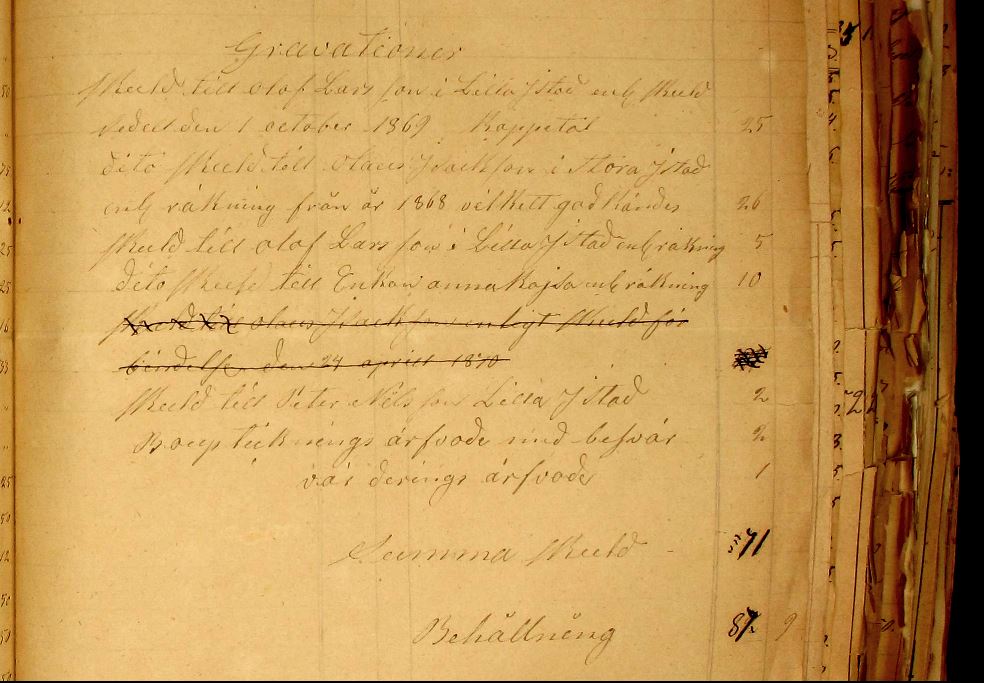 Gravationer
Skuld till Olof Lars son i Lilla Istad enl Skuld
sedell den 1 october 1869 Kappetal 25
dito Skuld till Olaus Isackson i Stora Istad
enl räkning från år 1868 vilkett godkändes 26
Skuld till Olof Lars son i Lilla Istad enl räkning 5
dito Skuld till Enkan anna Kajsa enl räkning 10
Skuld till Olaus Isackson enligt Skuld för
bindelse den 24 aprill 1870
Skuld till Peter Nils son Lilla Istad 2
Boup teknings arfvode med besvär 2
vär derings arfvode 1
Summa Skuld 71
Behållning 9